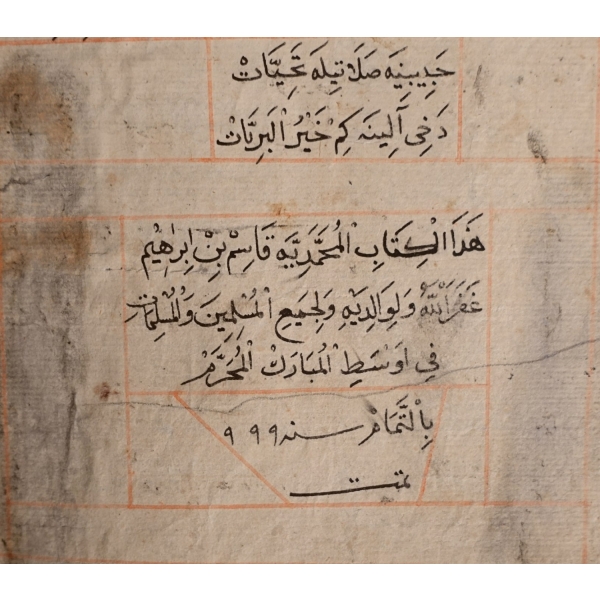 حَبِيبِنِيَه صَلَاتِيلَه تَحِيَّاتْ
دَخِى آلِينَه كِمْ خَيْرُ الْبَرِيَّاتْ
هَذَا الْكِتَابِ الْمُحَمَّدِيَّه قَاسِمْ بِنْ اِبرٰهِيْم
غَفَرَ اللّٰهُ وَلِوَالِدَيْهِ وَلِجَمِيعِ الْمُسْلِمِينَ وَالْمُسْلِمَات
فِي اَوْسَطِ الْمُبَارَكْ الْمُحَرَّمْ
بِالتَّمَامْ سنه ٩٩٩
تمت